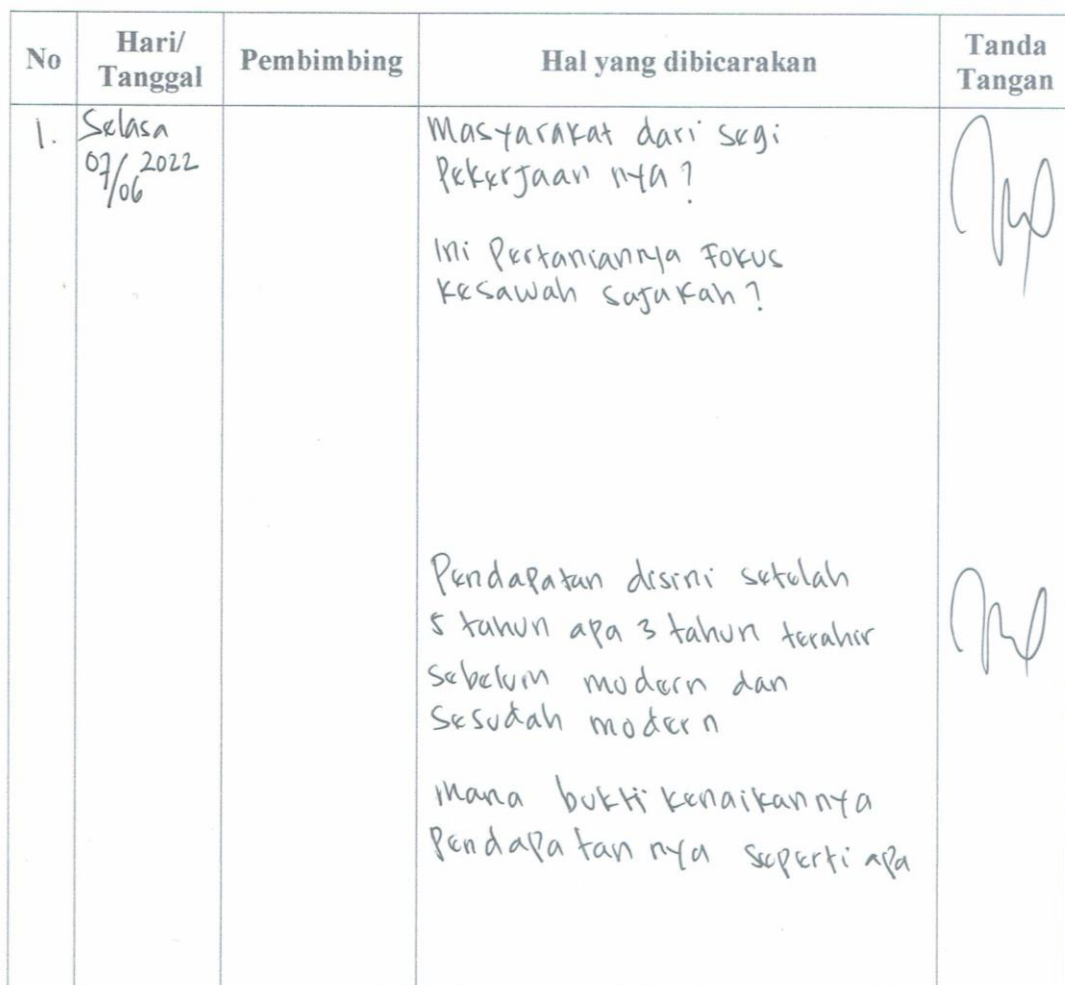 No
Hari/
Tanggal
Pembimbing
Hal yang dibicarakan
Tanda
Tangan
1.
Selasa
07/06 2022
Masyarakat dari segi
Pekerjaan nya?
Ini Pertaniannya Fokus
kesawah sajakah?
Pendapatan disini setelah
5 tahun apa 3 tahun terahir
sebelum modern dan
sesudah modern
mana bukti kenaikannya
Pendapatan nya seperti apa